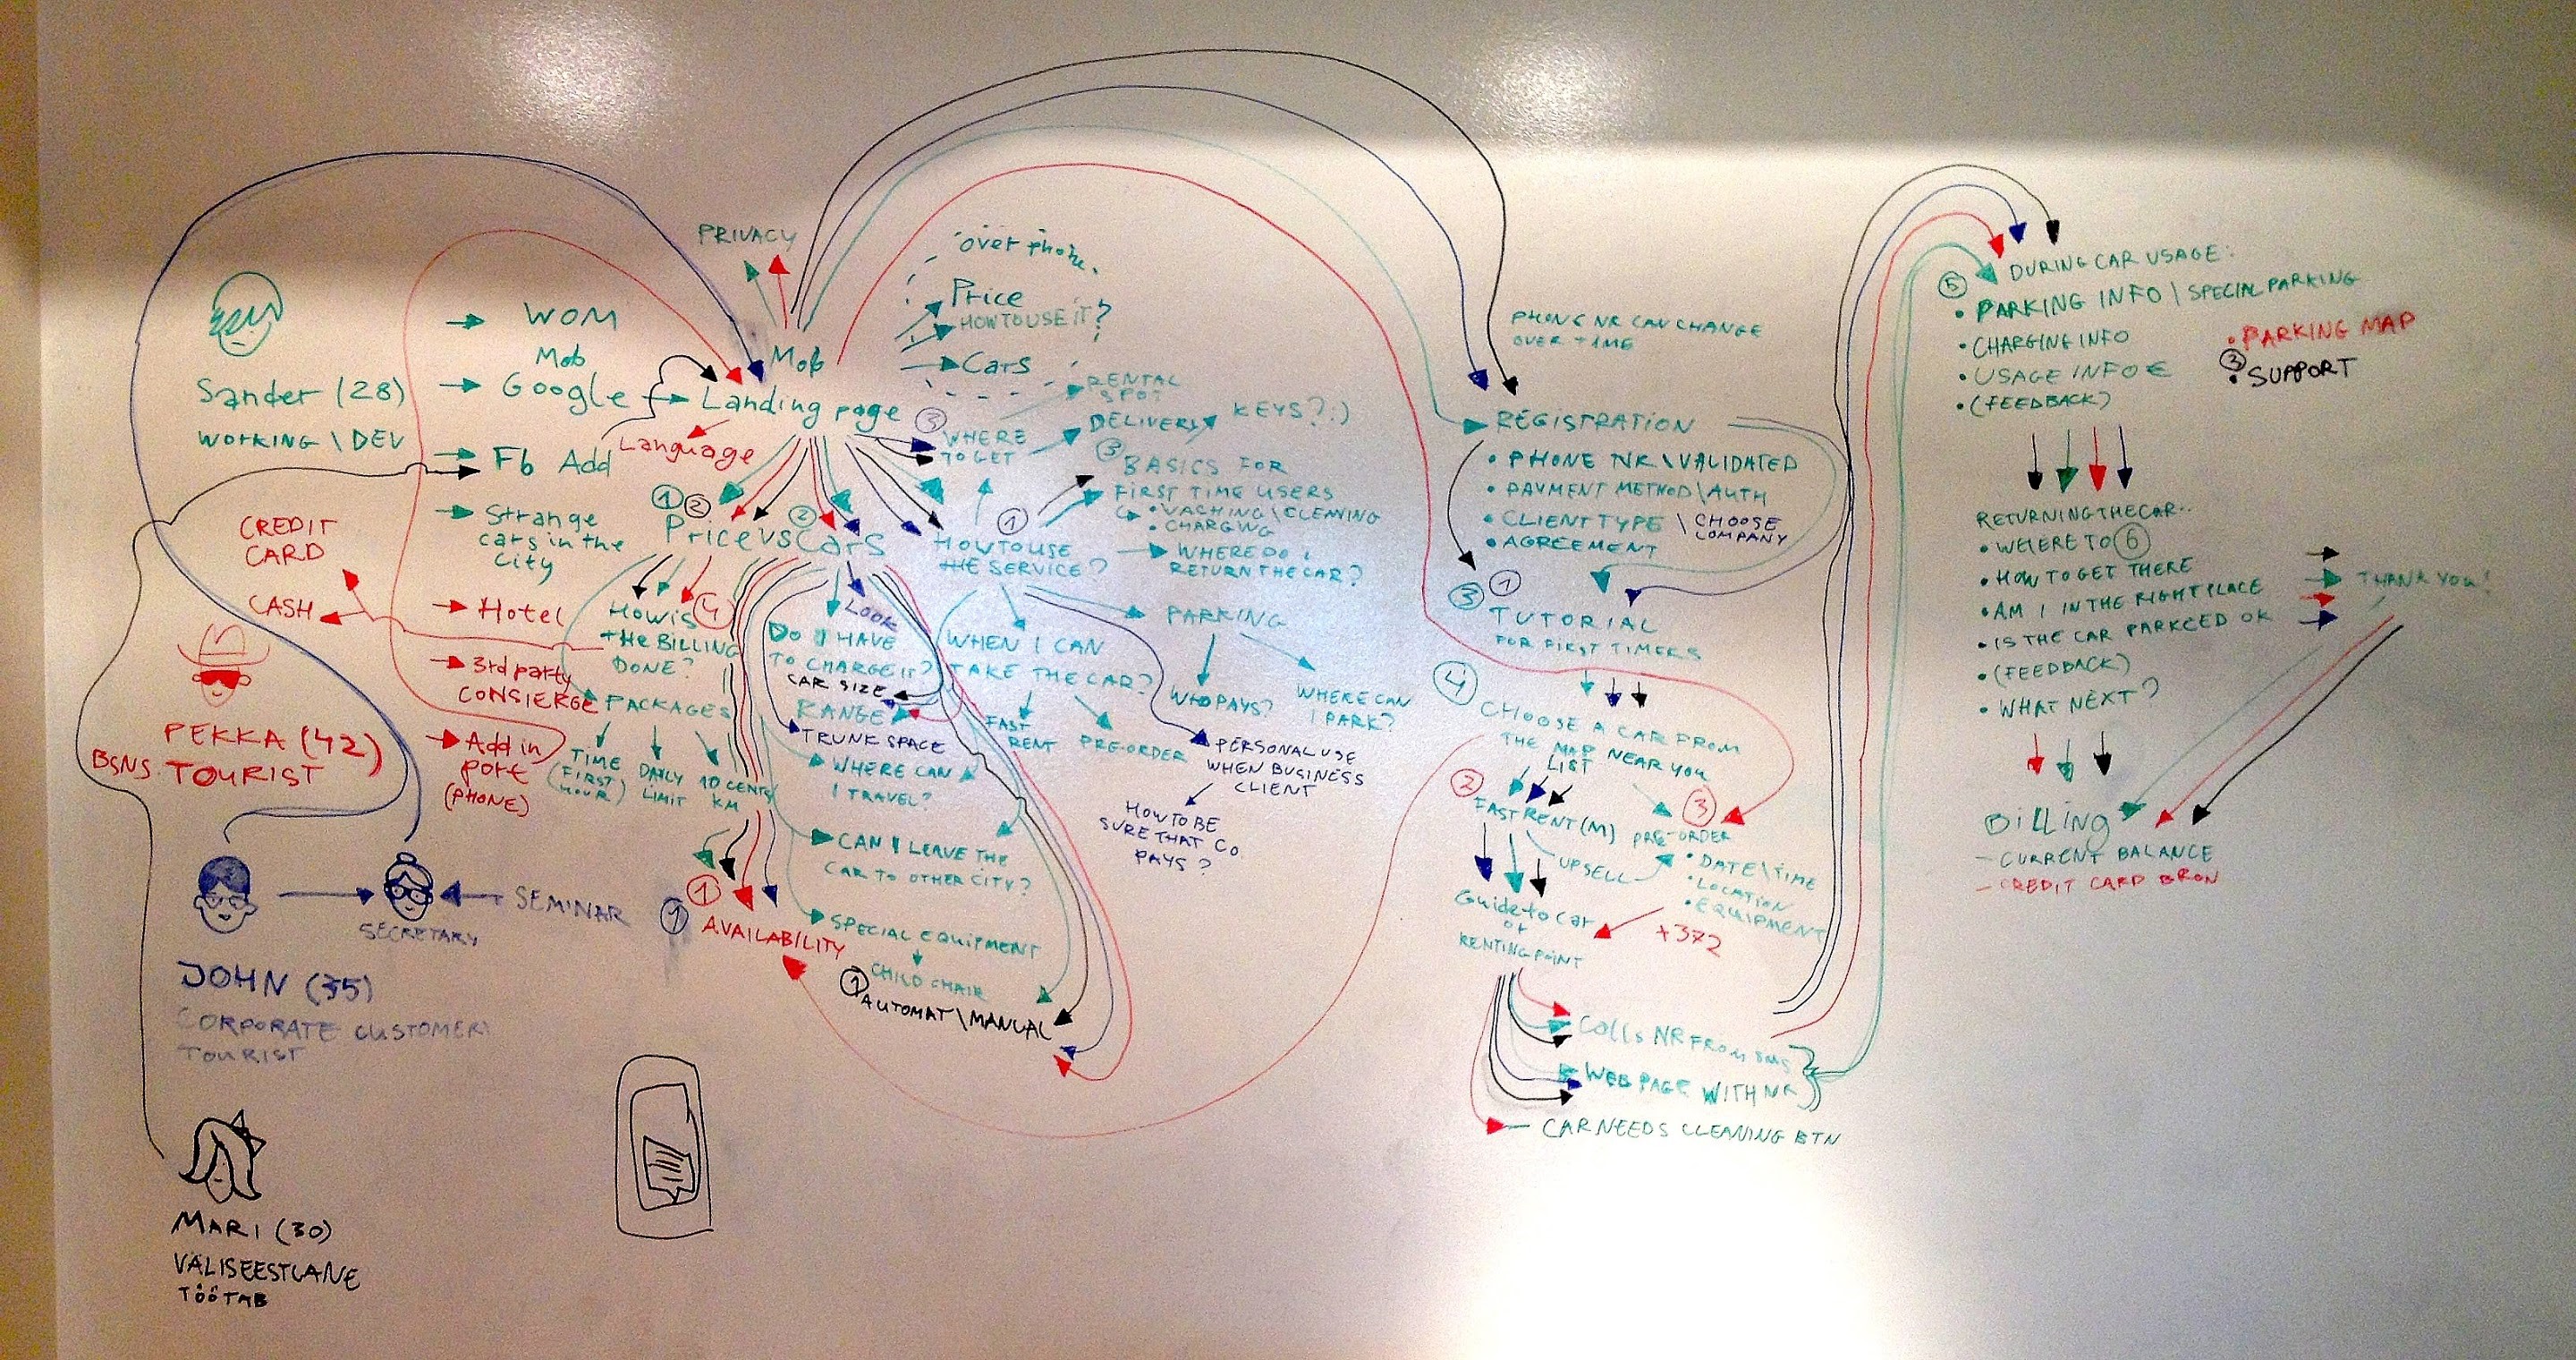 Sander (28)
WORKING \ DEV
WOM
Mob
Google
Fb Add
Strange
cars in the
City
CREDIT
CARD
CASH
PEKKA (42)
BSNS. TOURIST
Hotel
3rd party
CONSIERGE
Add in
port
(PHONE)
SECRETARY
SEMINAR
JOHN (35)
CORPORATE CUSTOMER
TOURIST
MARI (30)
VÄLISEESTLANE
TÖÖTAB
PRIVACY
Mob
Landing page
Language
over phone
Price
HOW TO USE IT?
Cars
③
WHERE
TO GET
RENTAL
SPOT
DELIVERY
KEYS? :)
③
BASICS FOR
FIRST TIME USERS
• VACHING \ CLEANING
• CHARGING
① ②
②
Price vs Cars
①
HOW TO USE
THE SERVICE?
WHERE DO I
RETURN THE CAR?
How is ④
THE BILLING
DONE?
PACKAGES
TIME
(FIRST
HOUR)
DAILY
LIMIT
10 CENTS/
KM
LOOK
DO I HAVE
TO CHARGE IT?
CAR SIZE
RANGE
TRUNK SPACE
WHERE CAN
I TRAVEL?
CAN I LEAVE THE
CAR TO OTHER CITY?
SPECIAL EQUIPMENT
CHILD CHAIR
①
AUTOMAT \ MANUAL
①
①
AVAILABILITY
WHEN I CAN
TAKE THE CAR?
FAST
RENT
PRE-ORDER
PARKING
WHO PAYS?
WHERE CAN
I PARK?
PERSONAL USE
WHEN BUSINESS
CLIENT
HOW TO BE
SURE THAT CO.
PAYS?
PHONE NR CAN CHANGE
OVER TIME
REGISTRATION
• PHONE NR \ VALIDATED
• PAYMENT METHOD \ AUTH
• CLIENT TYPE \ CHOOSE
COMPANY
• AGREEMENT
③ ①
TUTORIAL
FOR FIRST TIMERS
④
CHOOSE A CAR FROM
THE MAP NEAR YOU
LIST
②
FAST RENT (M)
③
PRE-ORDER
• DATE \ TIME
• LOCATION
• EQUIPMENT
UPSELL
+372
Guide to car
or
RENTING POINT
Calls NR FROM SMS
WEB PAGE WITH NR
CAR NEEDS CLEANING BTN
⑤
DURING CAR USAGE:
• PARKING INFO \ SPECIAL PARKING
• CHARGING INFO
• USAGE INFO €
• (FEEDBACK)
• PARKING MAP
③
• SUPPORT
RETURNING THE CAR..
• WHERE TO ⑥
• HOW TO GET THERE
• AM I IN THE RIGHT PLACE
• IS THE CAR PARKCED OK
• (FEEDBACK)
• WHAT NEXT?
THANK YOU!
Billing
– CURRENT BALANCE
– CREDIT CARD BRON